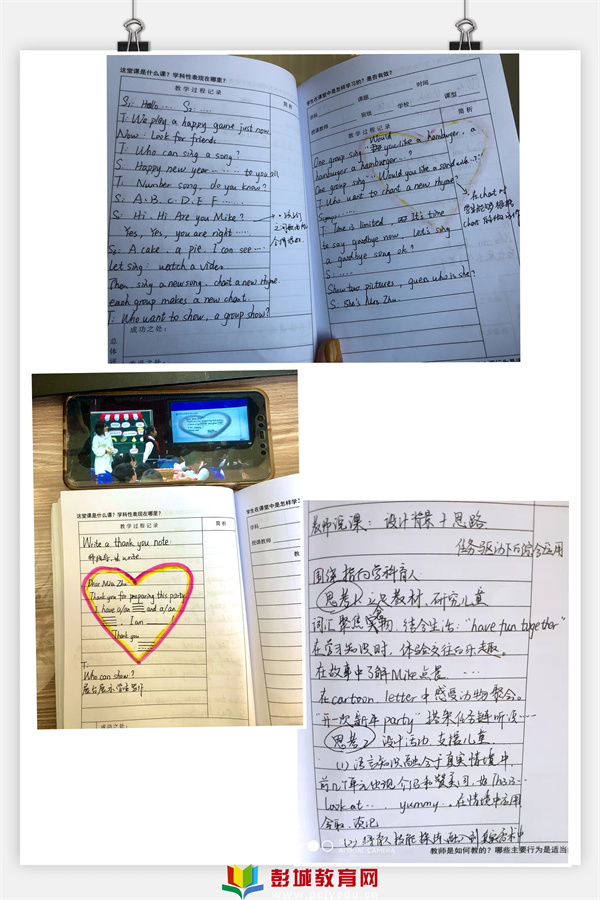 这堂课是什么课？学科性表现在哪里？
教学过程记录
简析
S₁: Hello ···· S₂: ····
T: We play a happy game just now.
Now: Look for friends
T: Who can sing a song?
S: Happy new year ······ to you all
T: Number song, do you know?
S: A·B·C·D·E·F ······
S: Hi, Hi Are you Mike?
Yes, Yes, you are right ····
S₂: A cake, a pie, I can see ····
Let sing: watch a video
Then sing a new song, chant a new rhyme.
each group makes a new chant.
T: Who want to show, a group show?
成功之处：
学生在课堂中是怎样学习的？是否有效？
学科
课题
时间
授课教师
班级
学校
课型
教学过程记录
简析
Would
One group sing "you like a hamburger, a
hamburger a hamburger···?
One group sing ··· Would you like a sandwich···?
T: Who want to chant a new rhyme?
T: Time is limited It's time
to say goodbye now, Let's sing
a goodbye song ok?
S: ·····
Show two pictures, guess who is she?
S: She's Mrs Zhu.
这堂课是什么课？学科性表现在哪里？
教学过程记录
简析
Write a thank you note:
write.
Dear Miss Zhu
Thank you for preparing this party.
I have a/an and a/an
I am
Thank you
T:
Who can show?
展台展示学生写作
成功之处：
学生在课堂中是怎样学
学科
授课教师
教
教师说课：设计背景＋思路
任务驱动下的综合应用
围绕指向学科育人
思考1：立足教材，研究儿童
词汇聚焦食物，结合生活："have fun together"
在学习知识时，体验交往的乐趣。
在故事中了解Mike点餐。 ····
在cartoon, letter中感受动物聚会。
"开一次新年party"
思考2 设计活动，支援儿童
(1) 语言知识融合于真实情境中
look at ···, yummy···在情境中应用
教师是如何教的？哪些主要行为是适当
彭城教育网